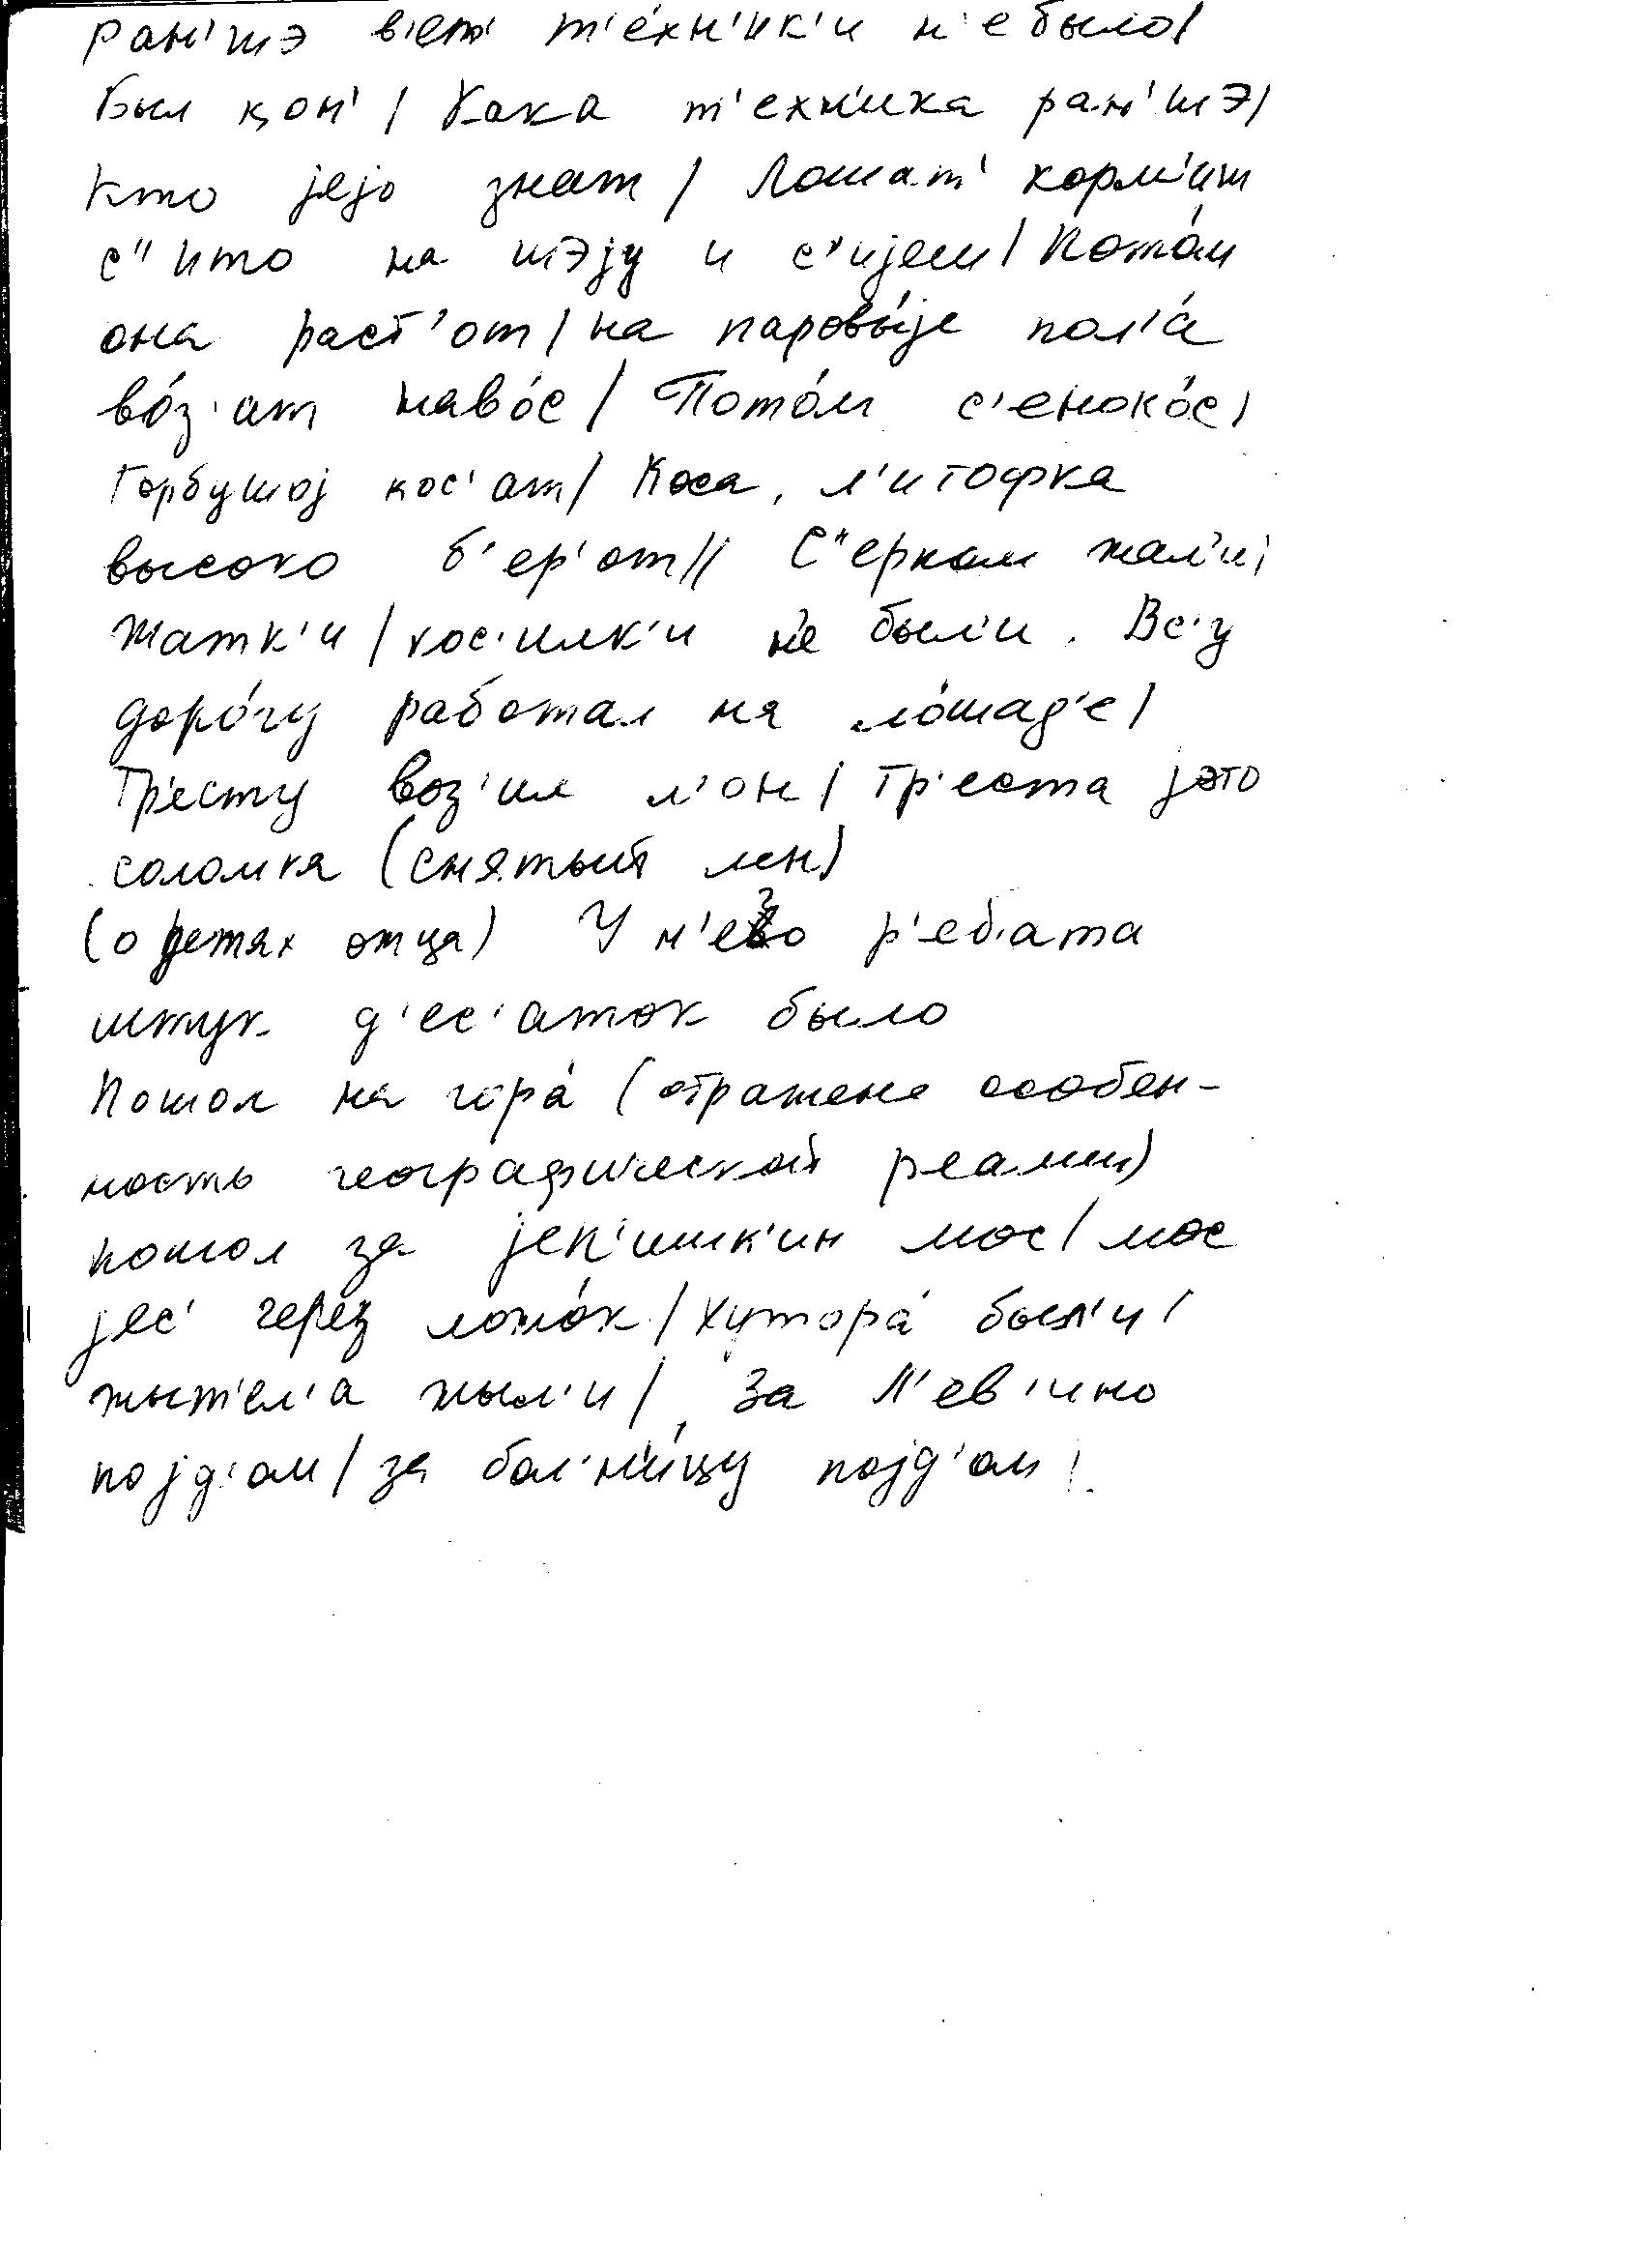 ран'шэ в'ет' т'е́хн'ик'и н'е было/
Был кон'/ Кака т'ехн'ика ран'шэ/
Кто jejo знат/ Лошат' корм'иш
с"ито на шэjу и с"иjеш/ Пото́м
она раст'от/ на паровы́jе пол'а́
во́з'ат наво́с/ Пото́м с'еноко́с/
Горбушоj кос'ат/ Коса, л'итофка
высоко б'ер'от// С"ерпом жал'и/
Жатк'и/ кос'илк'и н'е был'и. Вс'у
доро́гу работал на ло́шад'е/
Тр'есту воз'ил л'он/ Тр'еста jэто
соломка (снятый лен)
(о детях отца) У н'ево р'еб'ата
штук д'ес'аток было
Пошол на гора́ (отражена особен-
ность географической реалии)
пошол за jеп'ишк'ин мос/ мос
jес' через ложо́к/ хутора́ был'и/
жыт'ел'а жыл'и/ За Л'ев'ино
поjд'ом/ за бол'н'и́цу поjд'ом/.